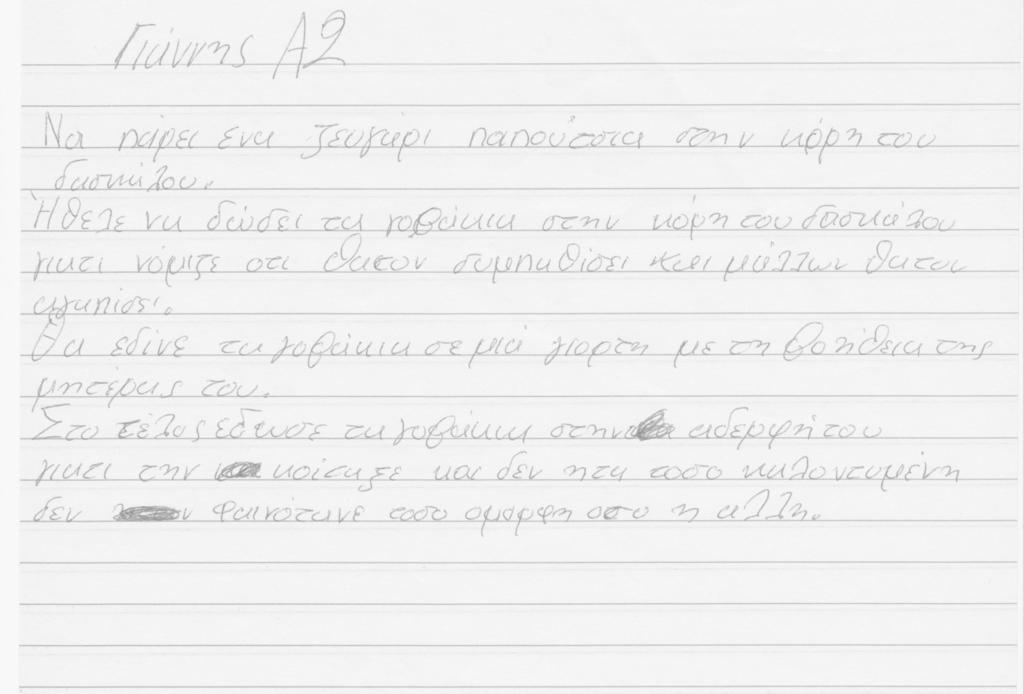 Γιάννης Α2
Να πάρει ενα ζευγάρι παπούτσια στην κόρη του
δασκάλου.
Ήθελε να δώσει τα γοβάκια στην κόρη του δασκάλου
γιατι νόμιζε οτι θατον συμπαθίσει και μάλλων θατον
αγαπίσει.
Θα εδινε τα γοβάκια σε μιά γιορτη με τη βοήθεια της
μητέρας του.
Στο τέλος εδωσε τα γοβάκια στην αδερφή του
γιατι την κοίταξε και δεν ητα τοσο καλοντυμένη
δεν φαινότανε τοσο ομορφη οσο η αλλη.